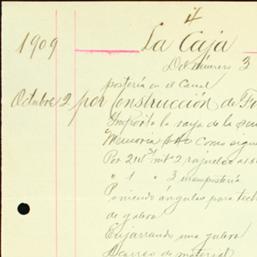 4
1909 La Caja
Ddo número 3
postería en el Canal
Octubre 2 por construcción de
Importó la raya de la
Memoria como sigue
Por mts 2
" 1 " 3 mampostería
Poniendo ángulos para tech
de galera
Enjarrando una galera
Acarreo de material